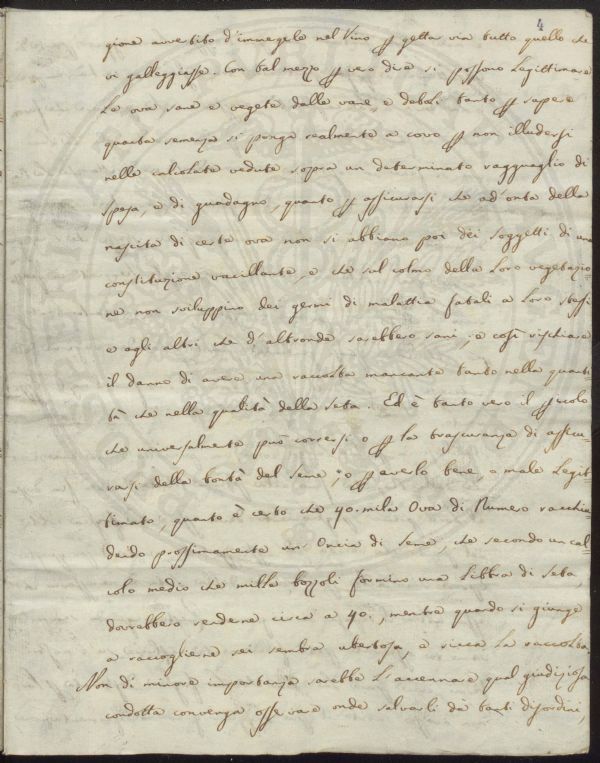 4
gione avvertito d'immergele nel Vino per getta via tutto quello che
vi galleggiasse. Con tal mezzo per vero dire si possono Legittimare
Le ova sane e vegete dalle vane, e deboli tanto per sapere
quanta semenza si ponga realmente a covo per non illudersi
nelle calcolate vedute sopra un determinato ragguaglio di
spesa, e di guadagno, quanto per assicurarsi che ad onta della
nascita di certe ova non si abbiano poi dei soggetti di una
constituzione vacillante, e che sul colmo della Loro vegetazio-
ne non sviluppino dei germi di malattia fatali a Loro stessi
e agli altri che d'altronde sarebbero sani, e così rischiare
il danno di avere una raccolta mancante tanto nella quanti-
tà che nella qualità della Seta. Ed è tanto vero il pericolo
che universalmente può corrersi o per la trascuranza di assicu-
rarsi della bontà del Seme, o per averlo bene, o male Legit-
timato, quanto è certo che 40. mila Ova di Numero racchiu-
dendo prossimamente un Oncia di Seme, che secondo un cal-
colo medio che mille bozzoli formino una Libbra di Seta,
dovrebbero renderne circa a 40., mentre quando si giunge
a raccoglierne sei sembra ubertosa, e ricca La raccolta.
Non di minore importanza sarebbe L'accennare qual giudiziosa
condotta convenga osservare onde salvarli da tanti disordini,